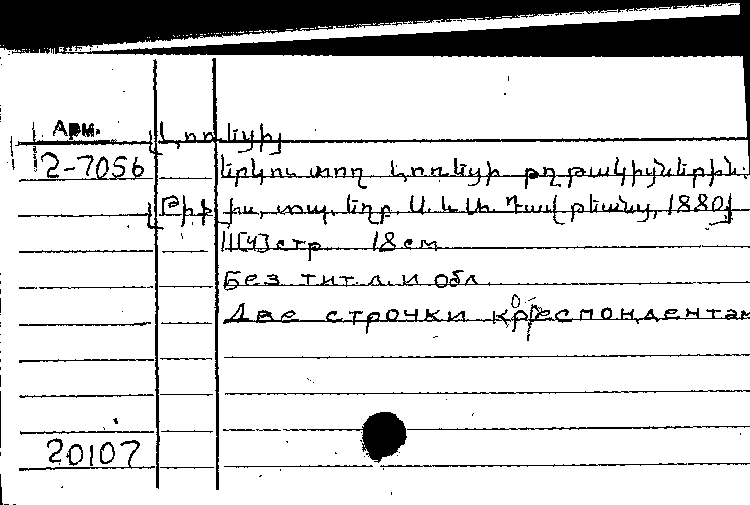 Арм. [Լոռեցի]
2-7056 Երկու տող Լոռեցի թղթակիցներին.
[Թիֆլիս, տպ. եղբ. Ա. և Ա. 1880]
11[4] стр 18 см
Без тит. л. и обл
Две строчки корреспондентам
20107